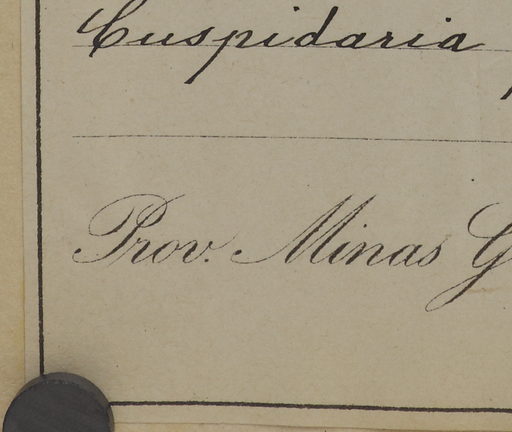 Cuspidaria
Prov. Minas G